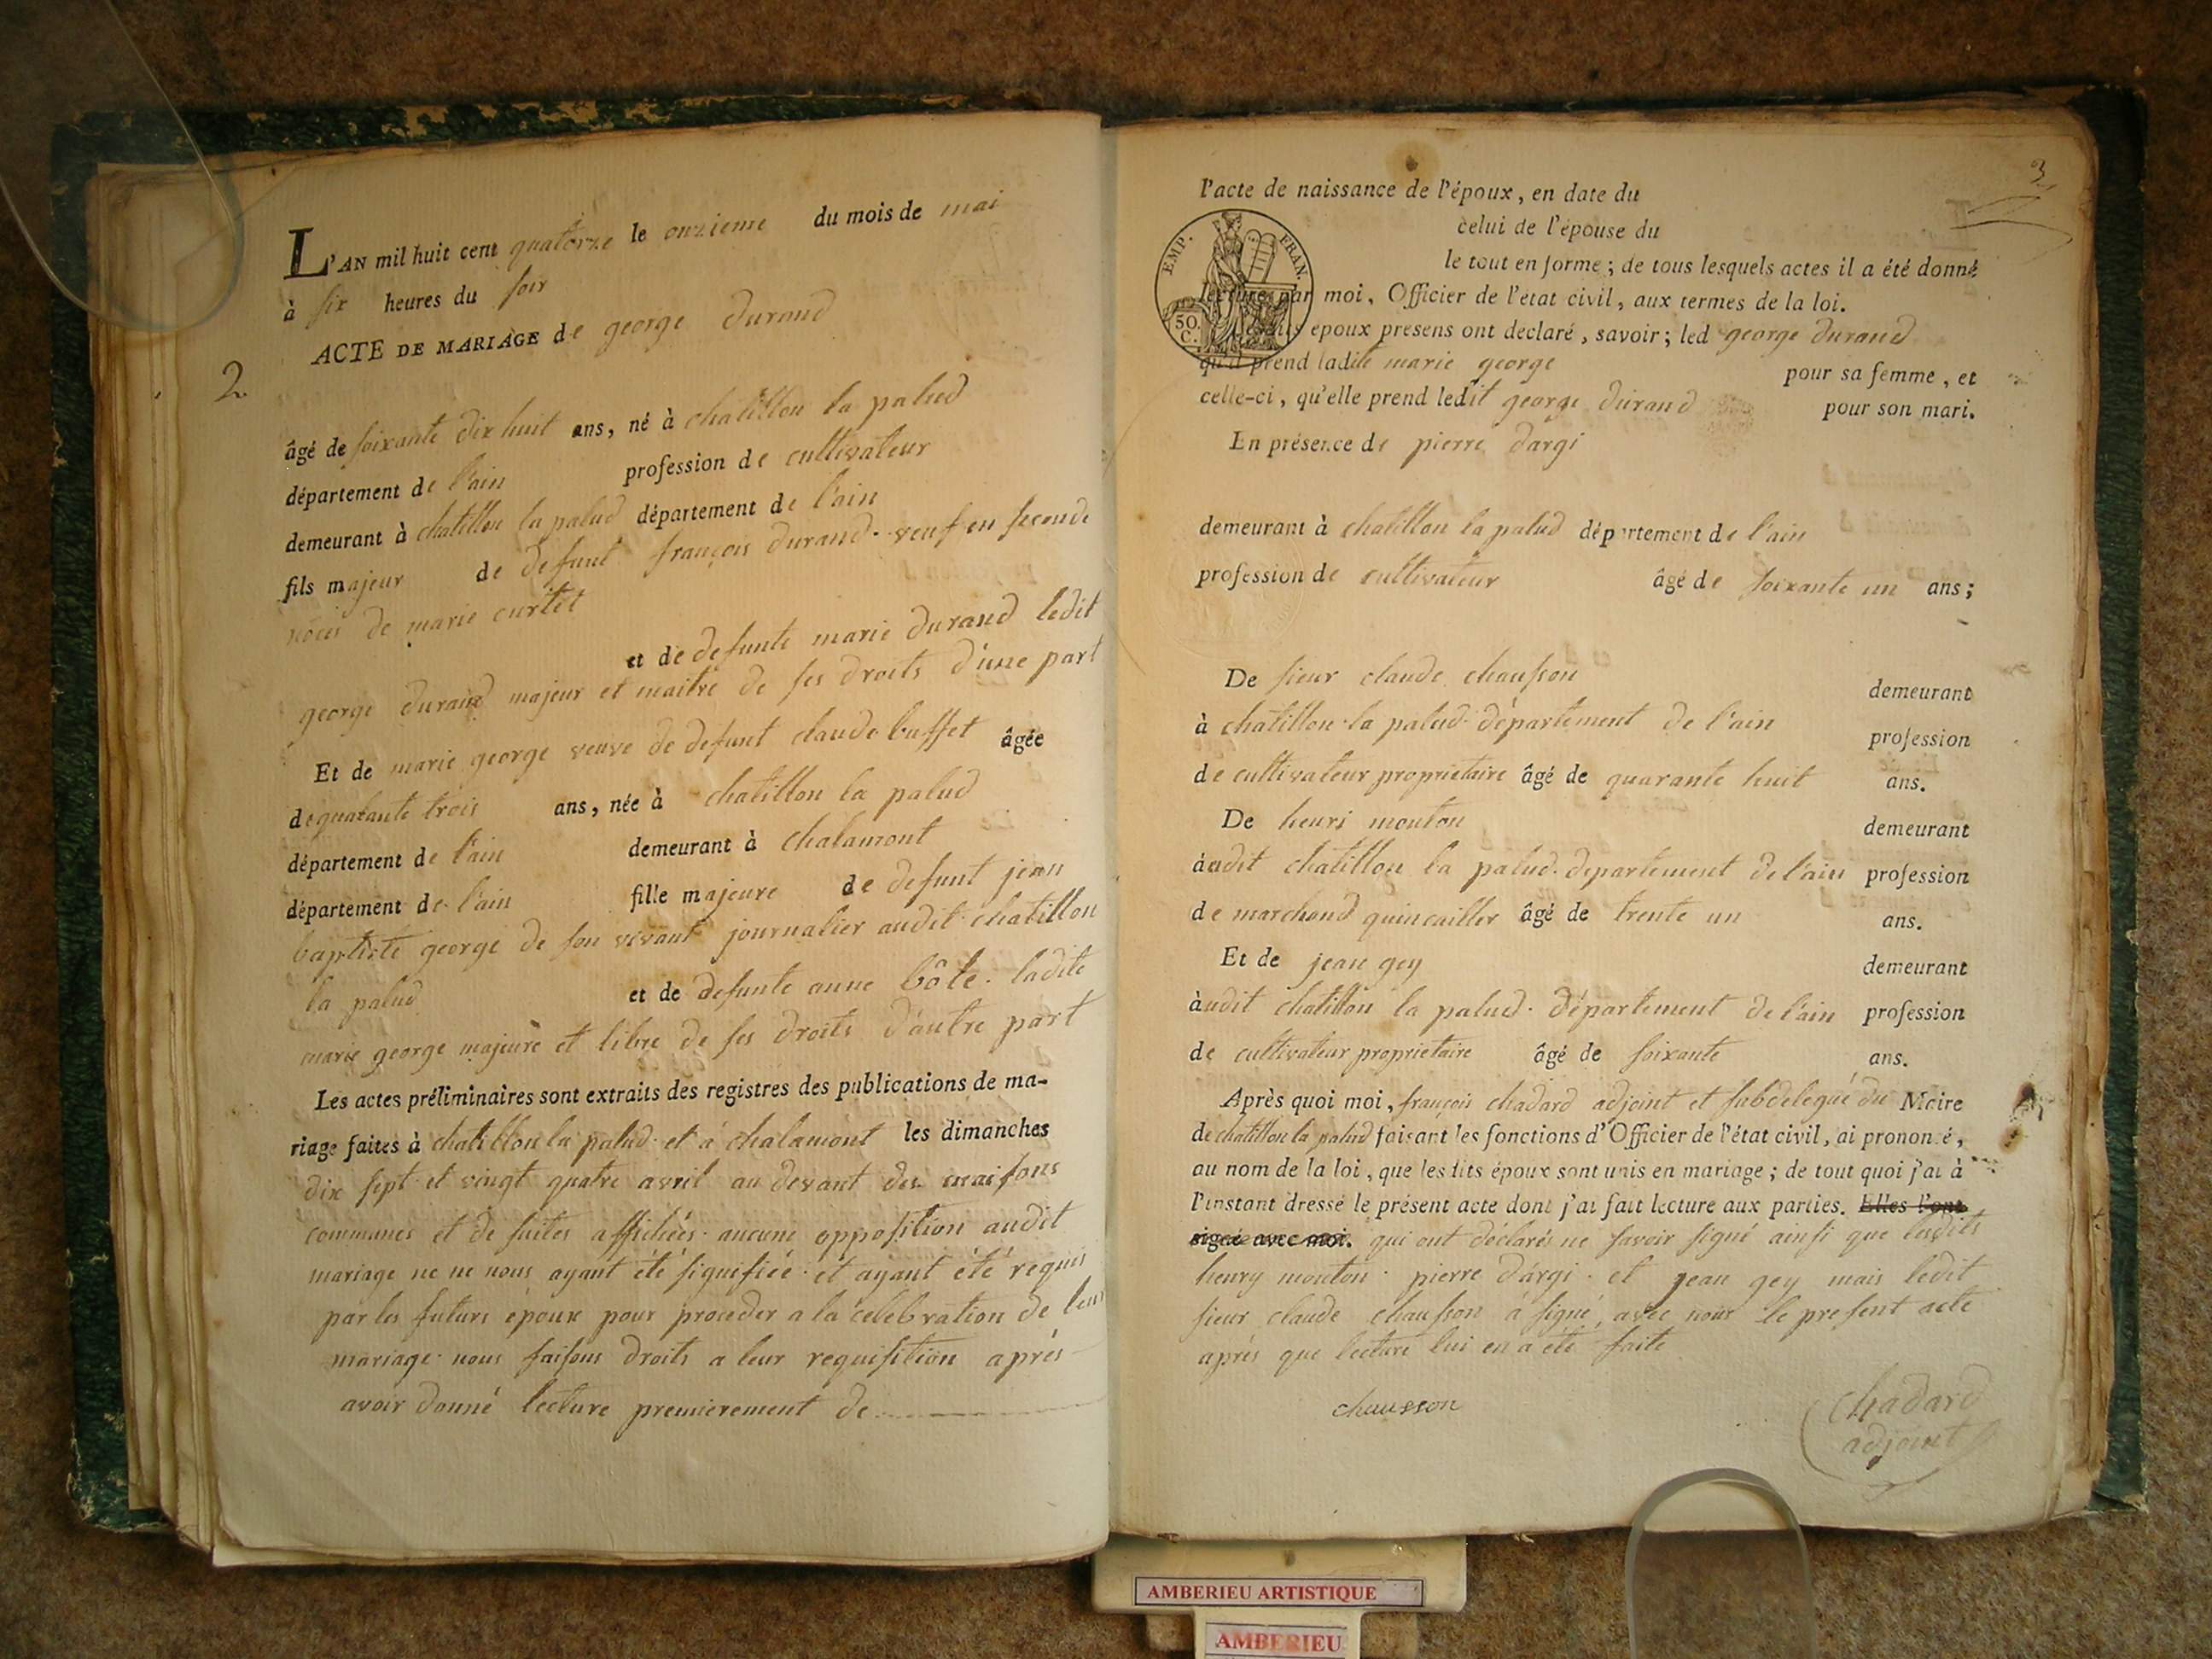 L'AN mil huit cent quatorze le onzieme du mois de mai
à six heures du soir
ACTE DE MARIAGE de george durand
2
âgé de soixante dix huit ans, né à chatillon la palud
département de l'ain profession de cultivateur
demeurant à chatillon la palud département de l'ain
fils majeur de defunt françois durand. veuf en seconde
noces de marie curtet
et de defunte marie durand ledit
george durand majeur et maitre de ses droits d'une part
Et de marie george veuve de defunt claude buffet âgée
de quarante trois ans, née à chatillon la palud
département de l'ain demeurant à chalamont
département de l'ain fille majeure de defunt jean
baptiste george de son vivant journalier audit chatillon
la palud et de defunte anne bôle. ladite
marie george majeure et libre de ses droits d'autre part
Les actes préliminaires sont extraits des registres des publications de ma-
riage faites à chatillon la palud et à chalamont les dimanches
dix sept et vingt quatre avril au devant des maisons
communes et de suites affichées. aucune opposition audit
mariage ne ne nous ayant été signifiée. et ayant été requis
par les futurs époux pour proceder a la celebration de leur
mariage. nous faisons droits a leur requisition aprés
avoir donné lecture premierement de
3
l'acte de naissance de l'époux, en date du
celui de l'épouse du
le tout en forme; de tous lesquels actes il a été donné
EMP. FRAN.
50. C.
lecture par moi, Officier de l'état civil, aux termes de la loi.
epoux presens ont declaré, savoir; led george durand
qu'il prend ladite marie george pour sa femme, et
celle-ci, qu'elle prend ledit george durand pour son mari.
En présence de pierre dargi
demeurant à chatillon la palud département de l'ain
profession de cultivateur âgé de soixante un ans;
De sieur claude chausson demeurant
à chatillon la palud. département de l'ain profession
de cultivateur proprietaire âgé de quarante huit ans.
De henri mouton demeurant
àudit chatillon la palud. departement de l'ain profession
de marchand quincailler âgé de trente un ans.
Et de jean gey demeurant
àudit chatillon la palud. département de l'ain profession
de cultivateur proprietaire âgé de soixante ans.
Après quoi moi, françois chadard adjoint et subdelegué du Maire
de chatillon la palud faisant les fonctions d'Officier de l'état civil, ai prononcé,
au nom de la loi, que lesdits époux sont unis en mariage; de tout quoi j'ai à
l'instant dressé le présent acte dont j'ai fait lecture aux parties. Elles l'ont
signé avec moi. qui ont déclarés ne savoir signé ainsi que lesdits
henry mouton. pierre d'argi. et jean gey mais ledit
sieur claude chausson à signé, avec nous le present acte
aprés que lecture lui en a été faite
chausson
chadard
adjoint
AMBERIEU ARTISTIQUE
AMBERIEU